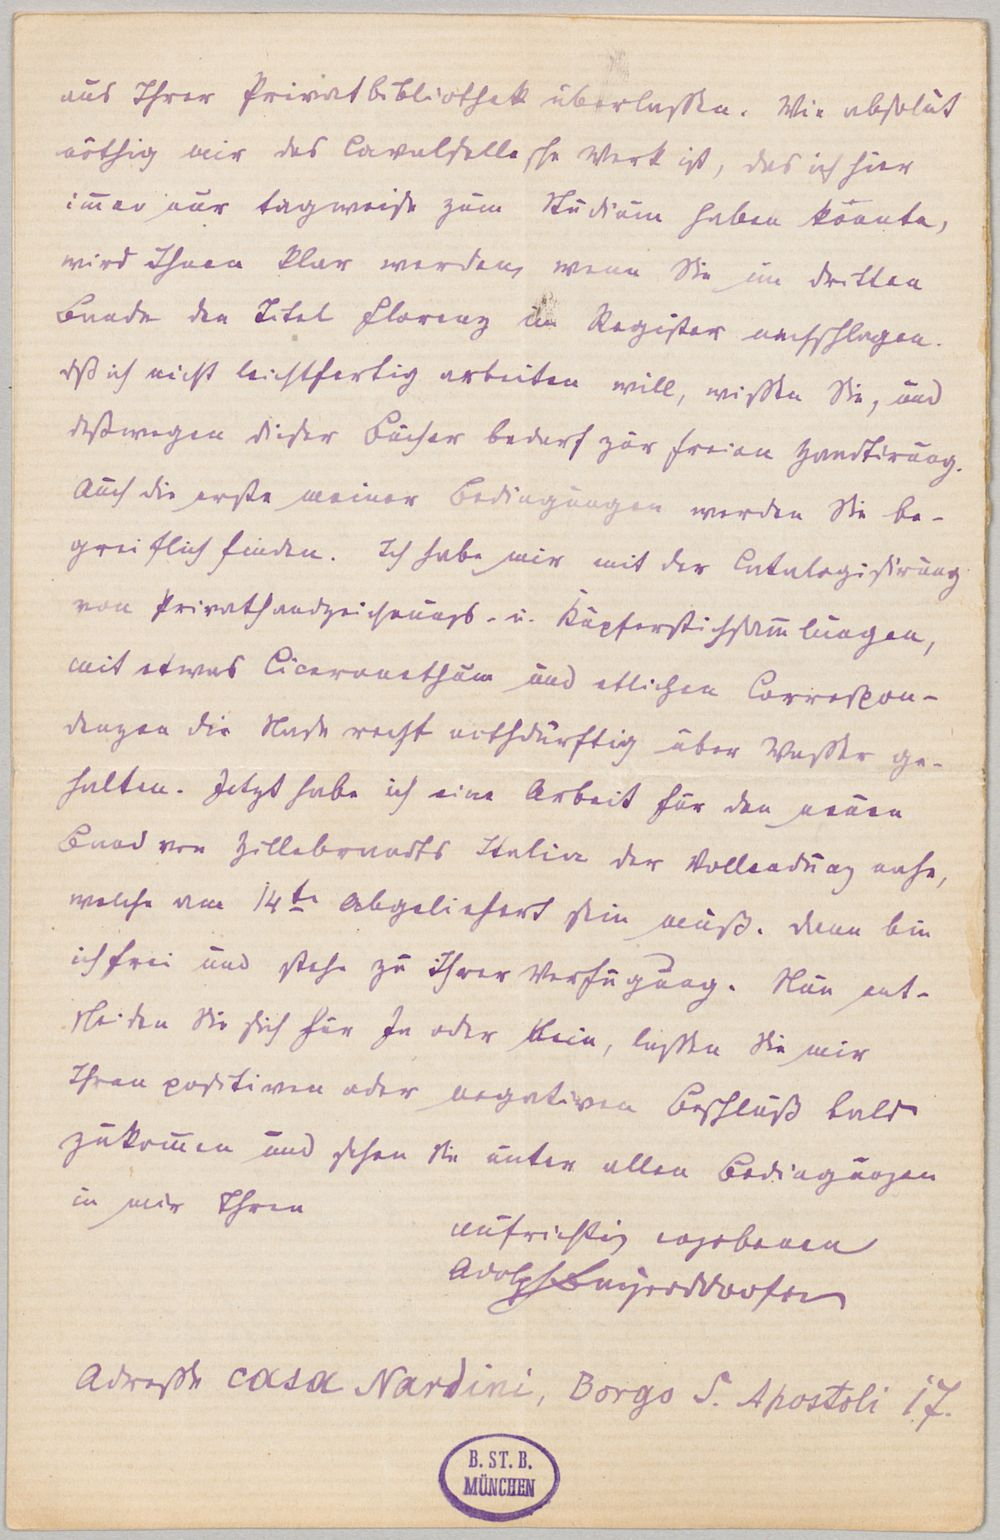 aus Ihrer Privatbibliothek überlassen. Wie absolut
nöthig mir das Cavalcasellesche Werk ist, das ich hier
im̅er nur tagweise zum Studium haben konnte,
wird Ihnen klar werden, wenn Sie im dritten
Bande den Titel Florenz im Register nachschlagen.
dß ich nicht leichtfertig arbeiten will, wissen Sie, und
deßwegen dieser Bücher bedarf zur freien Handtirung.
Auch die erste meiner Bedingungen werden Sie be-
greiflich finden. Ich habe mir mit der Catalogisirung
von Privathandzeichnungs- u. Kupferstichsam̅lungen,
mit etwas Ciceronethum und etlichen Correspon-
denzen die Nase recht nothdürftig über Wasser ge-
halten. Jetzt habe ich eine Arbeit für den neuen
Band von Hillebrandts Italia der Vollendung nahe,
welche am 14te abgeliefert sein muß. dann bin
ich frei und stehe zu Ihrer Verfügung. Nun ent-
scheiden Sie sich für Ja oder Nein, lassen Sie mir
Ihren positiven oder negativen Beschluß bald
zukom̅en und sehen Sie unter allen Bedingungen
in mir Ihren
aufrichtig ergebenen
Adolph Bayersdorfer
Adresse casa Nardini, Borgo S. Apostoli 17.
B. ST. B.
MÜNCHEN